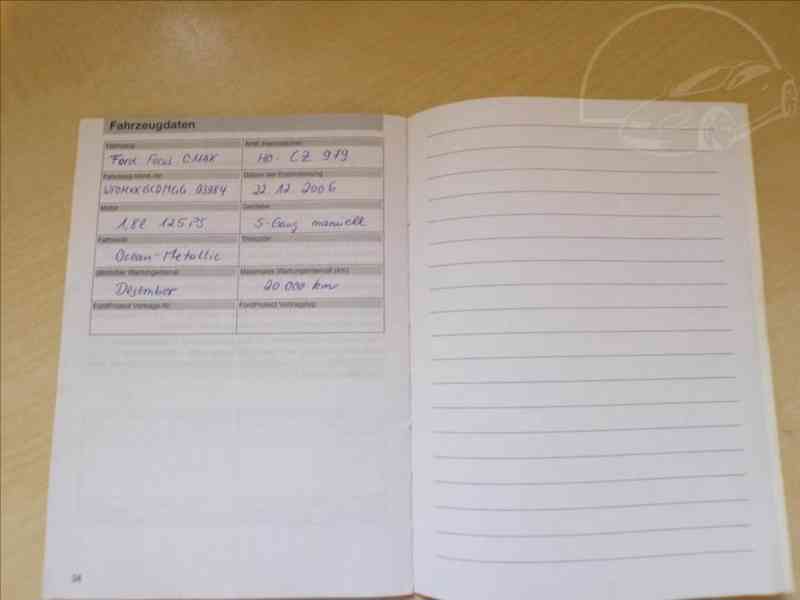 Fahrzeugdaten
Fahrzeug Amtl. Kennzeichen
Ford Focus CMAX HO- CZ 979
Fahrzeug-Ident.-Nr. Datum der Erstzulassung
22.12.2006
Motor Getriebe
1,8l 125PS 5-Gang manuell
Farbcode
Ocean-Metallic
Jährlicher Wartungsintervall Maximales Wartungsintervall (km)
Dezember 20.000 km
FordProtect Vertrags-Nr. FordProtect Vertragstyp